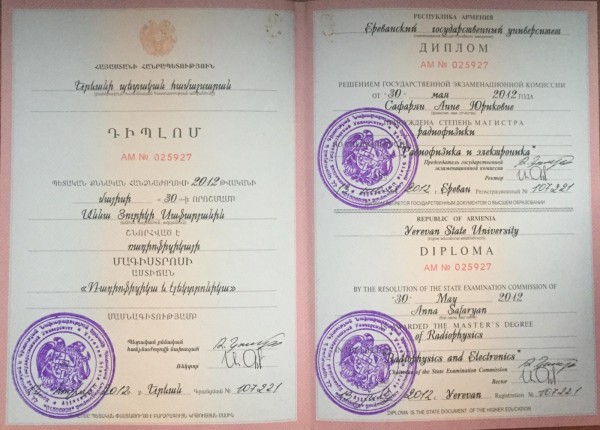 ՀԱՅԱՍՏԱՆԻ ՀԱՆՐԱՊԵՏՈՒԹՅՈՒՆ
Երևանի պետական համալսարան
ԴԻՊԼՈՄ
AM № 025927
ՊԵՏԱԿԱՆ ՔՆՆԱԿԱՆ ՀԱՆՁՆԱԺՈՂՈՎԻ 2012 ԹՎԱԿԱՆԻ
մայիսի -30-Ի ՈՐՈՇՄԱՄԲ
Աննա Յուրիկի Սաֆարյանին
ՇՆՈՐՀՎԱԾ Է
ռադիոֆիզիկայի
ՄԱԳԻՍՏՐՈՍԻ
ԱՍՏԻՃԱՆ
«Ռադիոֆիզիկա և էլեկտրոնիկա»
ՄԱՍՆԱԳԻՏՈՒԹՅԱՄԲ
Պետական քննական
հանձնաժողովի նախագահ
Ռեկտոր
2012, Երևան Գրանցման № 107221
РЕСПУБЛИКА АРМЕНИЯ
Ереванский государственный университет
ДИПЛОМ
AM № 025927
РЕШЕНИЕМ ГОСУДАРСТВЕННОЙ ЭКЗАМЕНАЦИОННОЙ КОМИССИИ
ОТ -30- мая 2012 ГОДА
Сафарян Анне Юриковне
СТЕПЕНЬ МАГИСТРА
радиофизики
Радиофизика и электроника"
Председатель государственной
экзаменационной комиссии
Ректор
2012, Ереван Регистрационный № 107221
ГОСУДАРСТВЕННЫМ ДОКУМЕНТОМ О ВЫСШЕМ ОБРАЗОВАНИИ
REPUBLIC OF ARMENIA
Yerevan State University
DIPLOMA
AM № 025927
BY THE RESOLUTION OF THE STATE EXAMINATION COMMISSION OF
-30- May 2012
Anna Safaryan
THE MASTER'S DEGREE
of Radiophysics
Radiophysics and Electronics"
Chairman of the State Examination Commission
Rector
2012, Yerevan Registration № 107221
DIPLOMA IS THE STATE DOCUMENT OF THE HIGHER EDUCATION